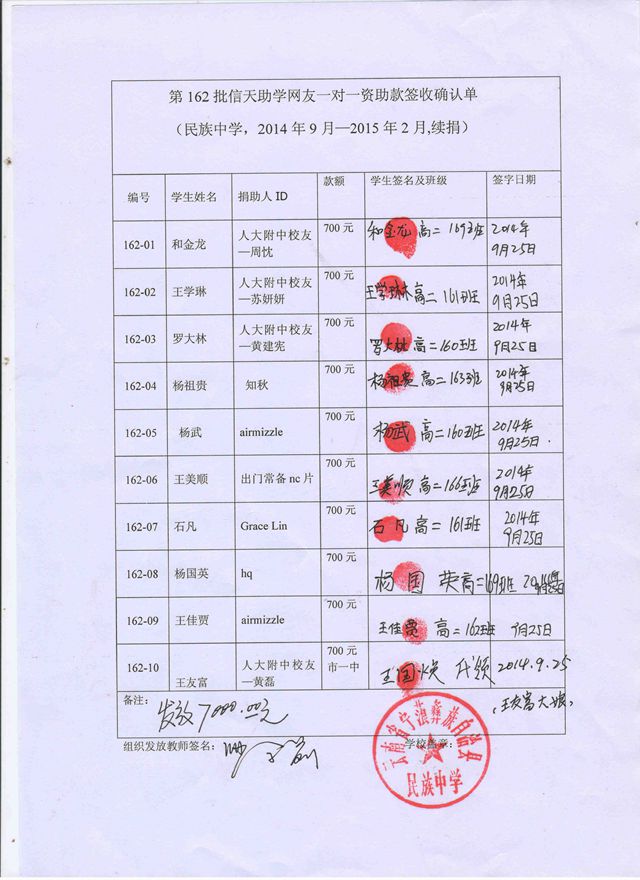 第 162 批信天助学网友一对一资助款签收确认单
（民族中学，2014 年 9 月—2015 年 2 月,续捐）
编号 学生姓名 捐助人 ID 款额 学生签名及班级 签字日期
162-01 和金龙 人大附中校友 700 元 和金龙 高二 169班 2014年
—周忱 9月25日
162-02 王学琳 人大附中校友 700 元 王学琳 高二 161班 2014年
—苏妍妍 9月25日
162-03 罗大林 人大附中校友 700 元 罗大林 高二 160班 2014年
—黄建宪 9月25日
162-04 杨祖贵 知秋 700 元 杨祖贵 高二 163班 2014年
9月25日
162-05 杨武 airmizzle 700 元 杨武 高二 160班 2014年
9月25日.
162-06 王美顺 出门常备 nc 片 700 元 王美顺 高二 166班 2014年
9月25日
162-07 石凡 Grace Lin 700 元 石凡 高二 161班 2014年
9月25日
162-08 杨国英 hq 700 元 杨国英 高二 169班
162-09 王佳贾 airmizzle 700 元 王佳贾 高二 162班 9月25日
162-10 王友富 人大附中校友 700 元 王国焕 代领 2014.9.25
—黄磊 市一中
备注： 发放7000.00元 (王友富大娘)
组织发放教师签名： 学校盖章：
云南省宁蒗彝族自治县
民族中学